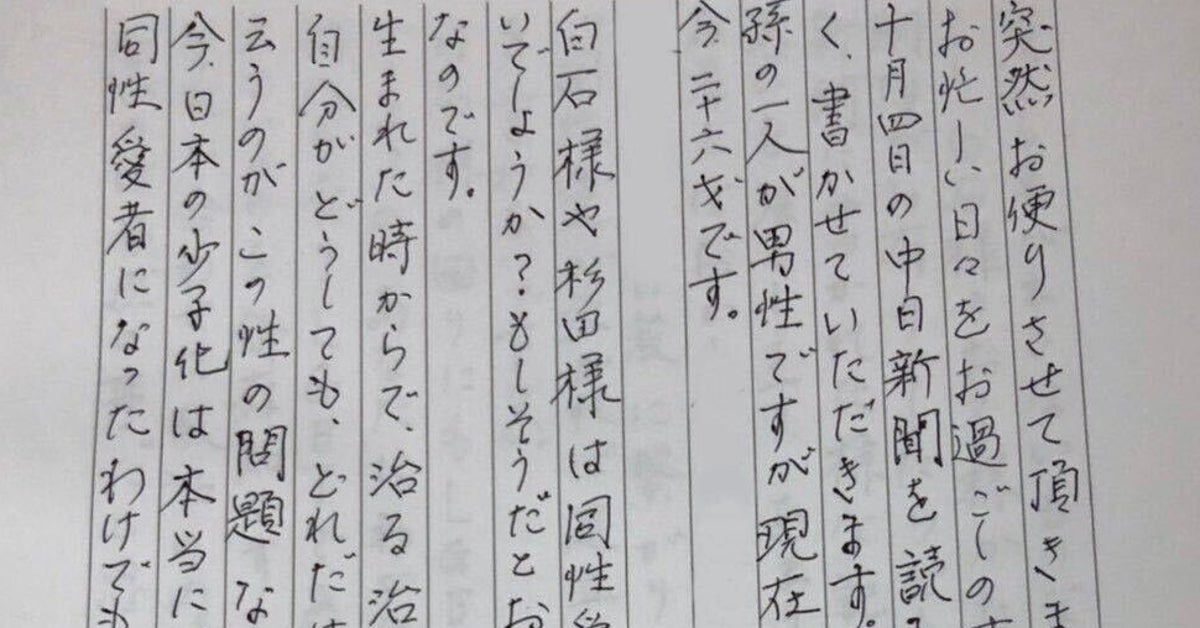 突然お便りさせて頂きま
お忙しい日々をお過ごしの
十月四日の中日新聞を読
く、書かせていただきます。
孫の一人が男性ですが現在
今、二十六才です。
白石様や杉田様は同性愛
いでしょうか？もしそうだとお
なのです。
生まれた時からで、治る治
自分がどうしても、どれだけ
云うのがこの性の問題な
今、日本の少子化は本当に
同性愛者になったわけでも